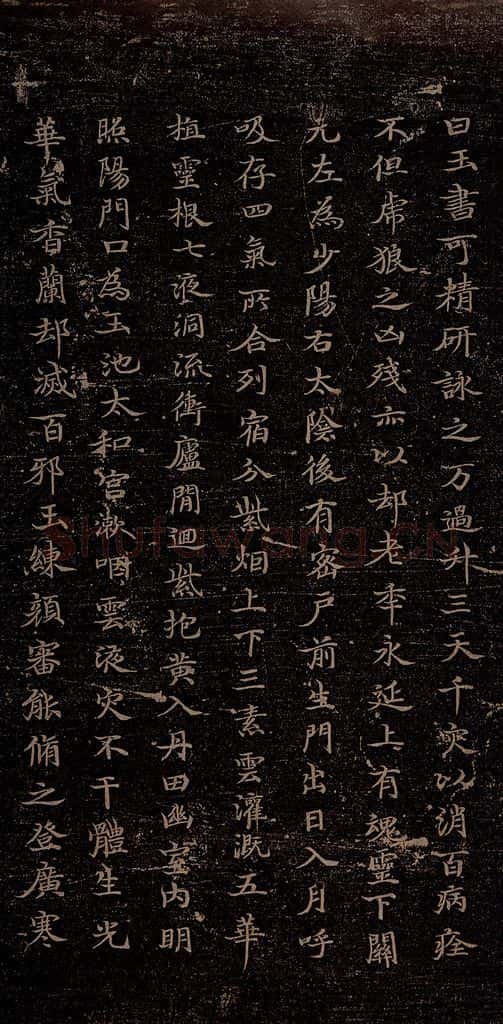 曰玉書可精研詠之万過升三天千灾以消百病痊
不但虎狼之凶殘亦以却老年永延上有魂靈下關
元左為少陽右太陰後有密户前生門出日入月呼
吸存四氣所合列宿分紫烟上下三素雲灌溉五華
植靈根七液洞流衝廬間迴紫抱黄入丹田幽室内明
照陽門口為玉池太和宫漱咽雲液灾不干體生光
華氣香蘭却滅百邪玉練顔審能脩之登廣寒
Shufawang.cn